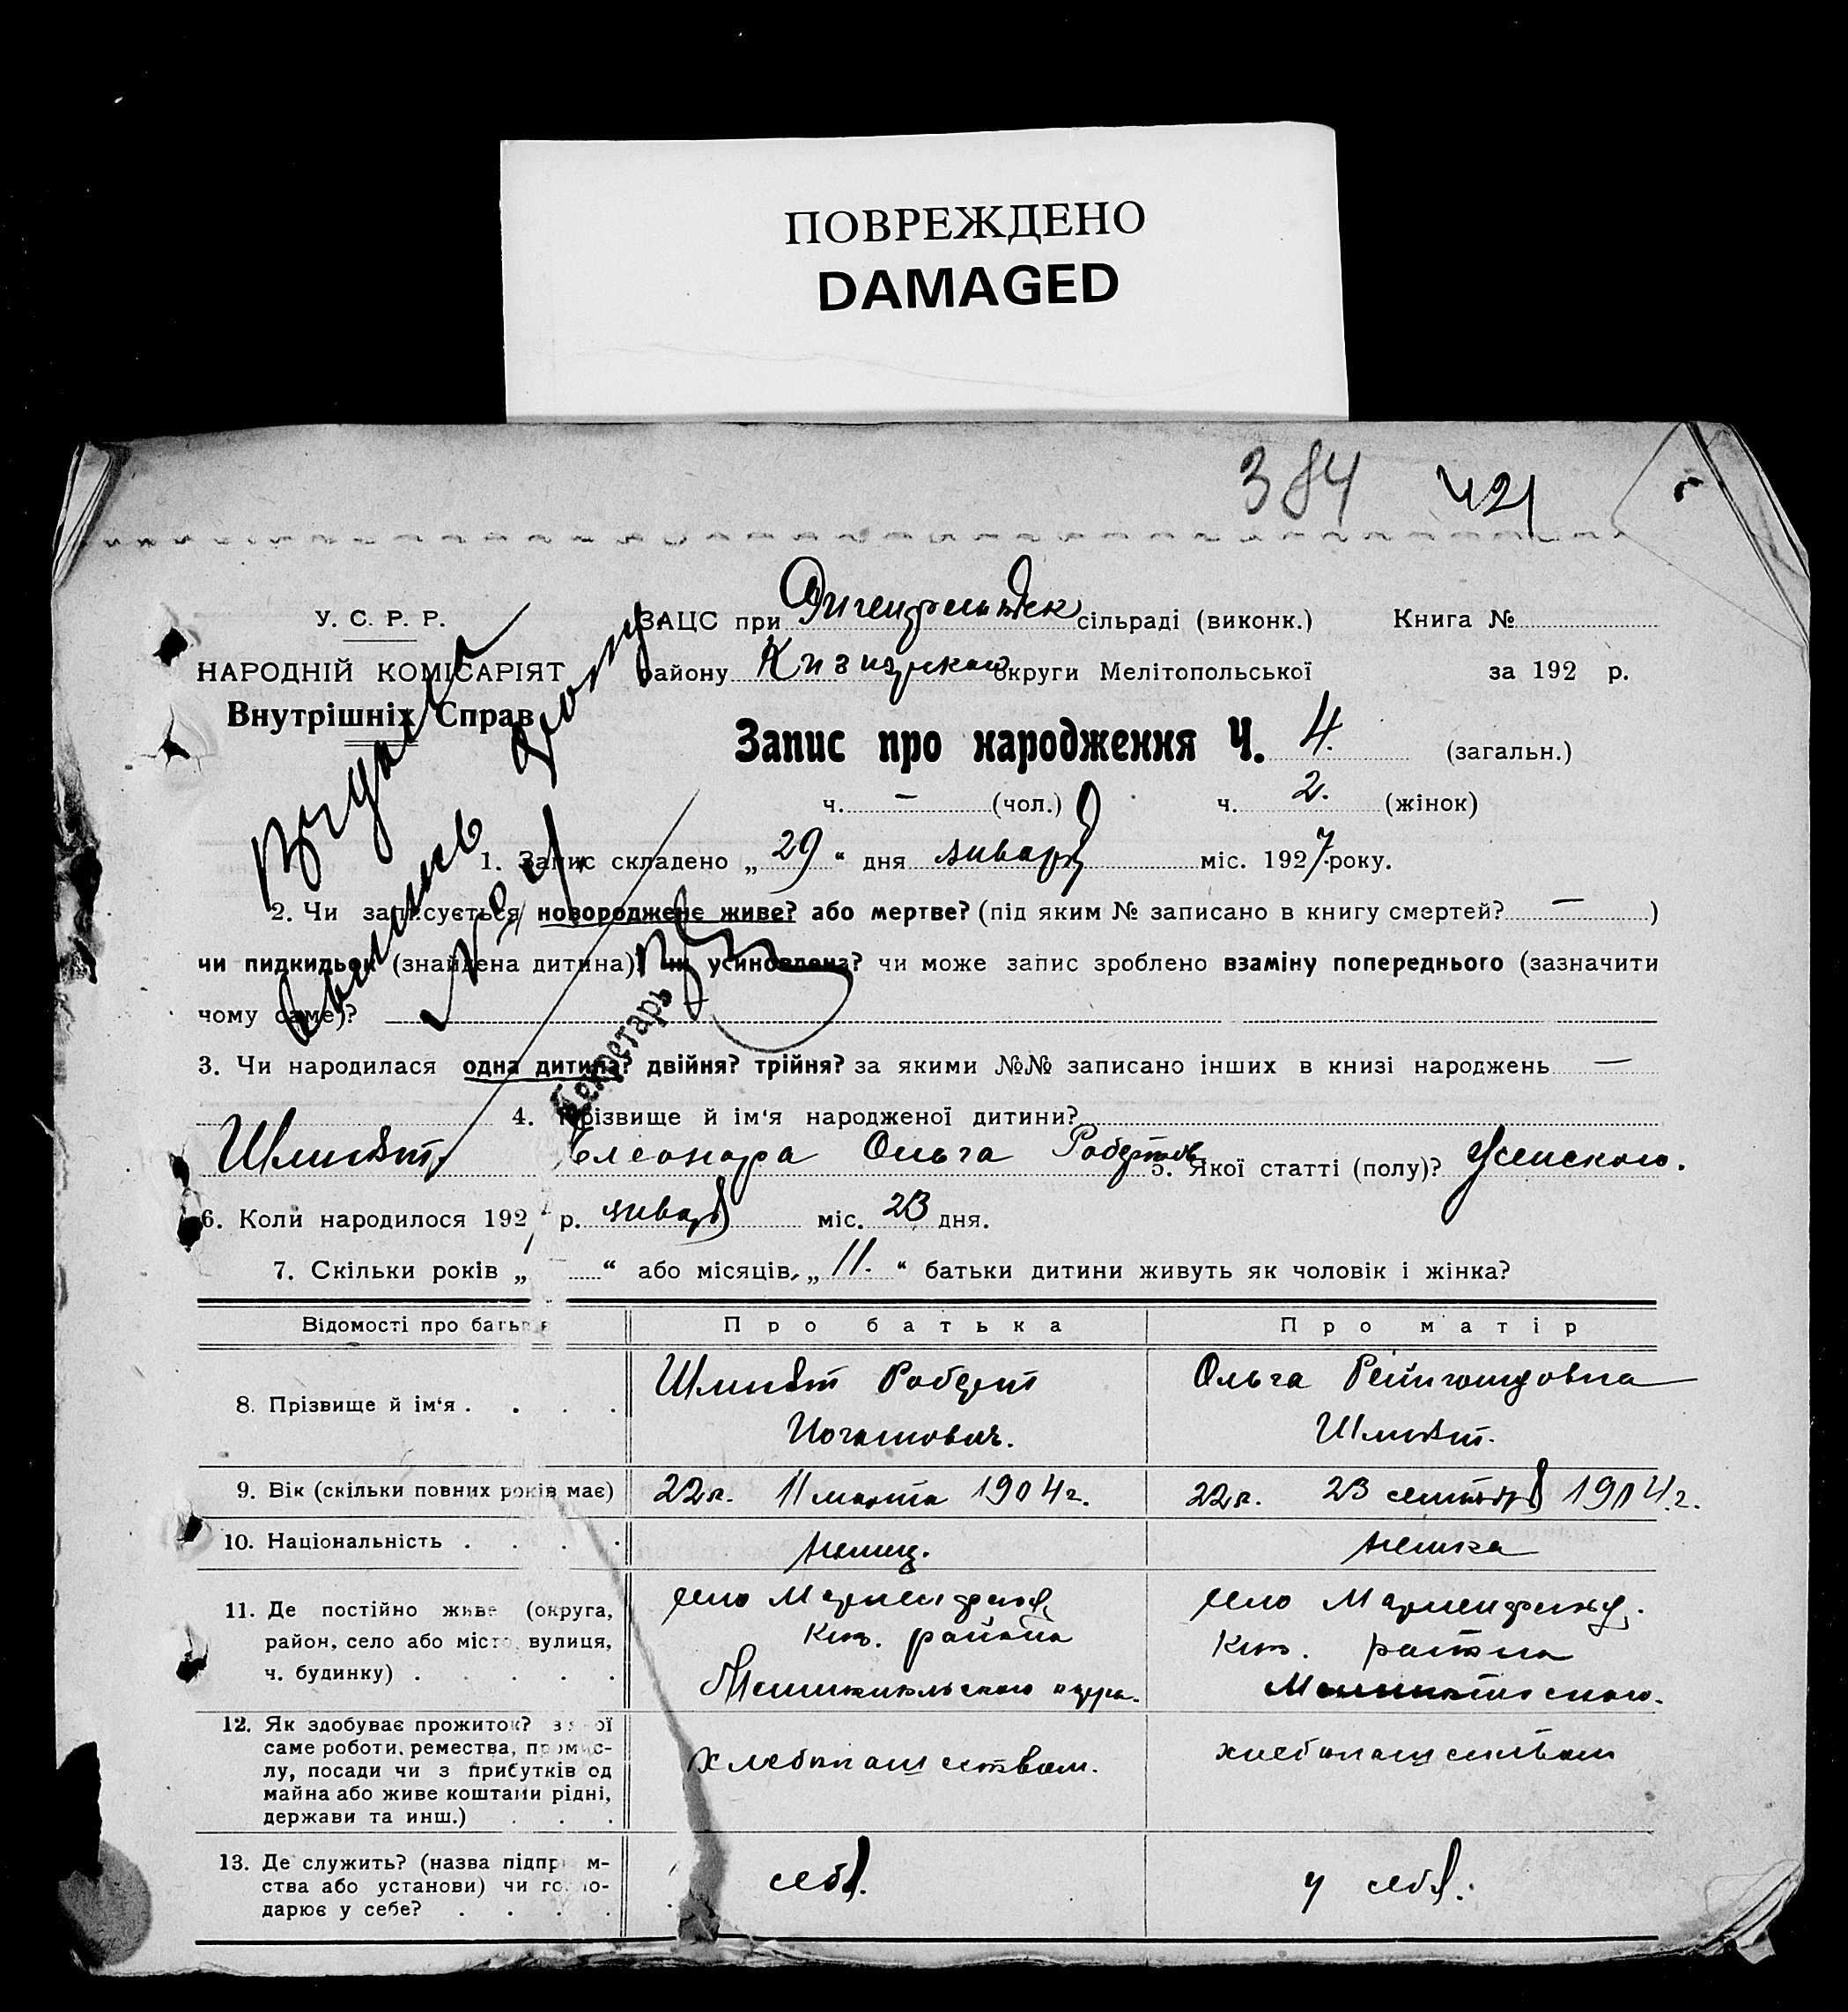 ПОВРЕЖДЕНО
DAMAGED
384 421
У. С. Р. Р.
НАРОДНІЙ КОМІСАРІЯТ
Внутрішніх Справ
ЗАЦС при сільраді (виконк.) Книга №
району округи Мелітопольської за 192 р.
Запис про народження Ч. 4. (загальн.)
ч. — (чол.) ч. 2. (жінок)
1. Запис складено „ 29 “ дня января міс. 1927 року.
2. Чи записується новороджене живе? або мертве? (під яким № записано в книгу смертей? — )
чи пидкидьок (знайдена дитина)? чи усиновлена? чи може запис зроблено взаміну попереднього (зазначити
чому саме)?
Секретарь
3. Чи народилася одна дитина? двійня? трійня? за якими №№ записано інших в книзі народжень —
4. Прізвище й ім‘я народженої дитини?
Шмидт Елеонора Ольга Робертов 5. Якої статті (полу)? Женского.
6. Коли народилося 1927 р. января міс. 23 дня.
7. Скільки років „ “ або місяців „ 11. “ батьки дитини живуть як чоловік і жінка?
Відомості про батьків Про батька Про матір
8. Прізвище й ім‘я . . . . Шмидт Роберт Ольга Рейнгольдовна
Иоганович. Шмидт.
9. Вік (скільки повних років має) 22 л. 11 марта 1904 г. 22 л. 23 сентября 1904 г.
10. Національність . . . . Немец. Немка
11. Де постійно живе (округа,
район, село або місто, вулиця,
ч. будинку) . . . . .
село Мариенфельд,
Киз. района
Мелитопольского округа.
село Мариенфельд.
Киз. района
Мелитопольского.
12. Як здобуває прожиток? з якої
саме роботи, ремества, промис-
лу, посади чи з прибутків од
майна або живе коштами рідні,
держави та инш.) . . .
хлебопашеством.
хлебопашеством
13. Де служить? (назва підприєм-
ства або установи) чи госпо-
дарює у себе? . . . .
себя.
у себя.